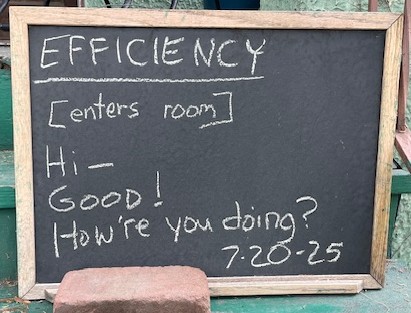 EFFICIENCY
[enters room]
Hi—
GOOD!
How're you doing?
7-20-25